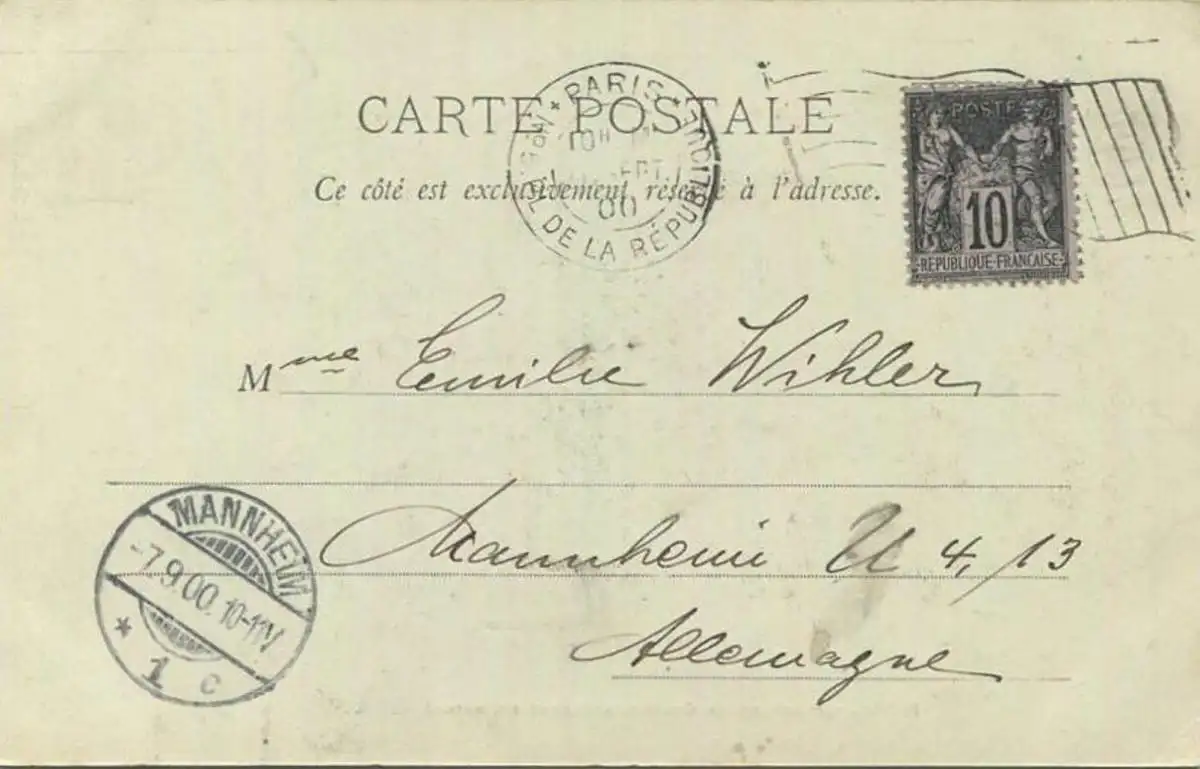 CARTE POSTALE
Ce côté est exclusivement réservé à l'adresse.
PARIS
10H
SEPT.
00
DE LA RÉPUBLIQUE
POSTE
10
REPUBLIQUE FRANCAISE
Mme Emilie Wihler
Mannheim U 4,/13
Allemagne
MANNHEIM
-7.9.00. 10-11V
* 1 c